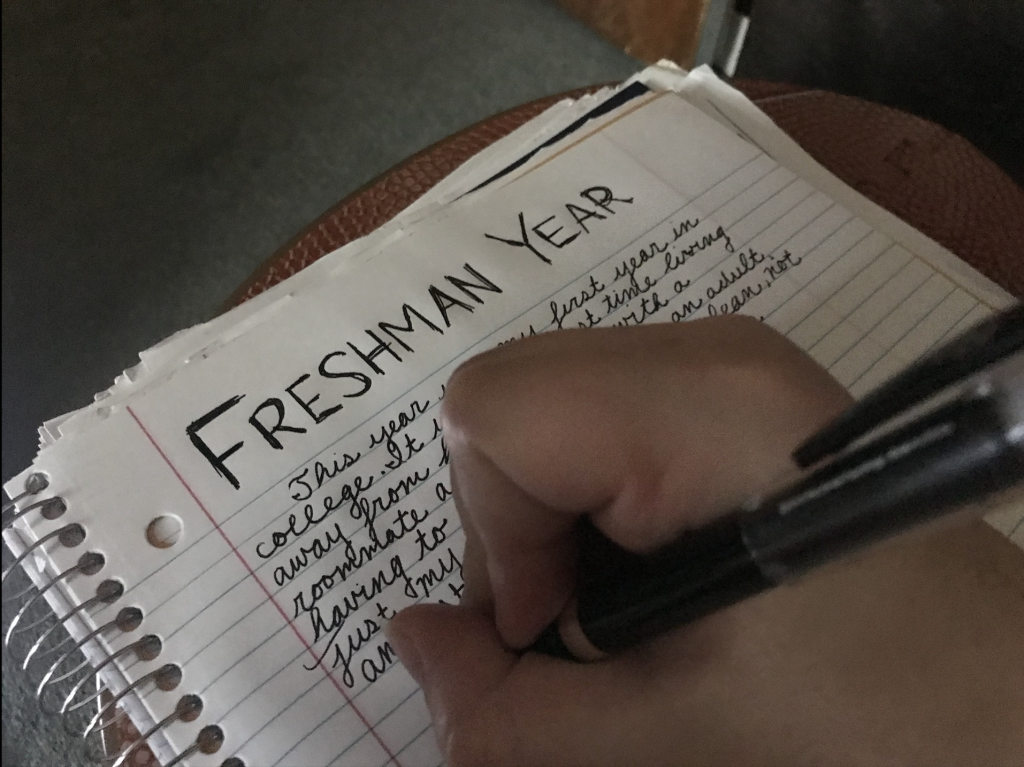 FRESHMAN YEAR
This year my first year in
college. It st time living
away from with a
roommate a an adult
having to lean, not
just my
an